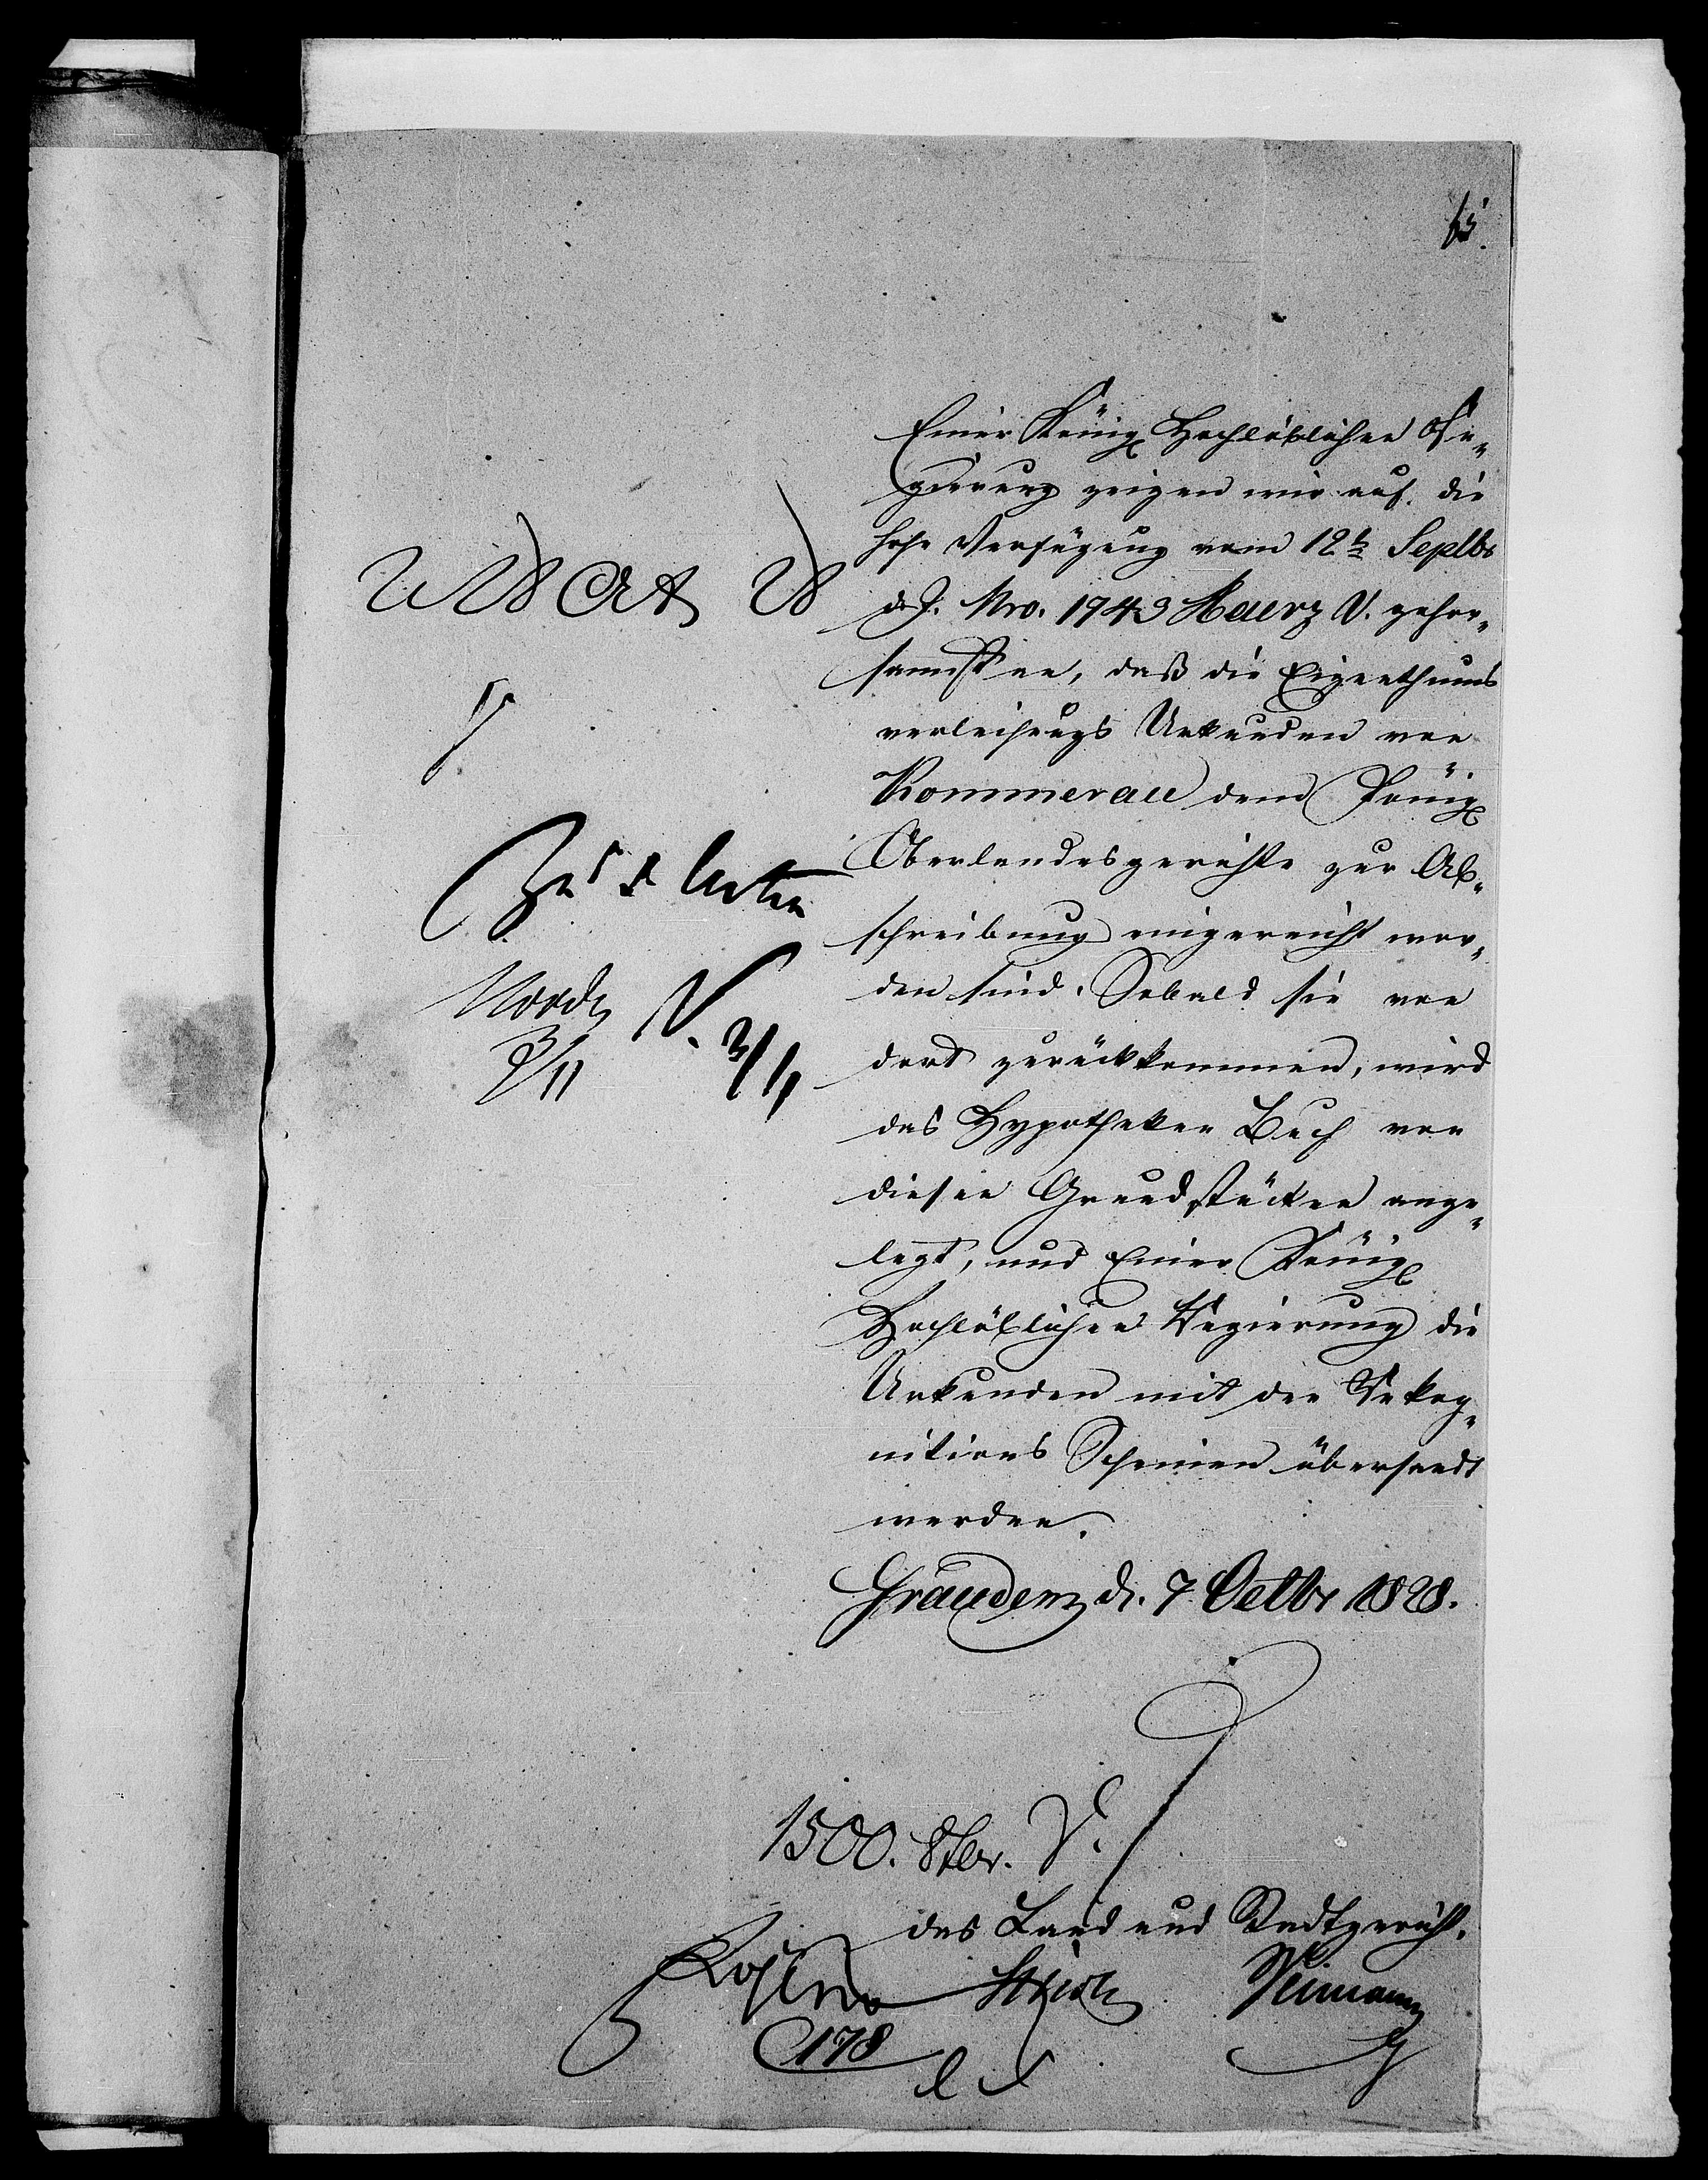 63.
Einer Königl Hochlöblichen Re„
gierung zeigen wir auf die
hohe Verfügung vom 12t Septbr
d. J. Nro. 1943 Maerz V. gehor„
samst an, daß die Eigenthums
verleihungs Urkunden von
Kommerau dem Königl
Oberlandesgerichte zur Ab„
schreibung eingereicht wor„
den sind. Sobald sie von
dort zurückkommen, wird
das Hypotheken Buch von
diesen Grundstücken ange„
legt, und Einer Königl
Hochlöblichen Regierung die
Urkunden mit den Rekog„
nitions Scheinen übersandt
werden.
Graudenz d. 7 Octbr 1828.
Zu d Acten
3/11
1500. 8tbr. V.
das Land und Stadtgericht.
178